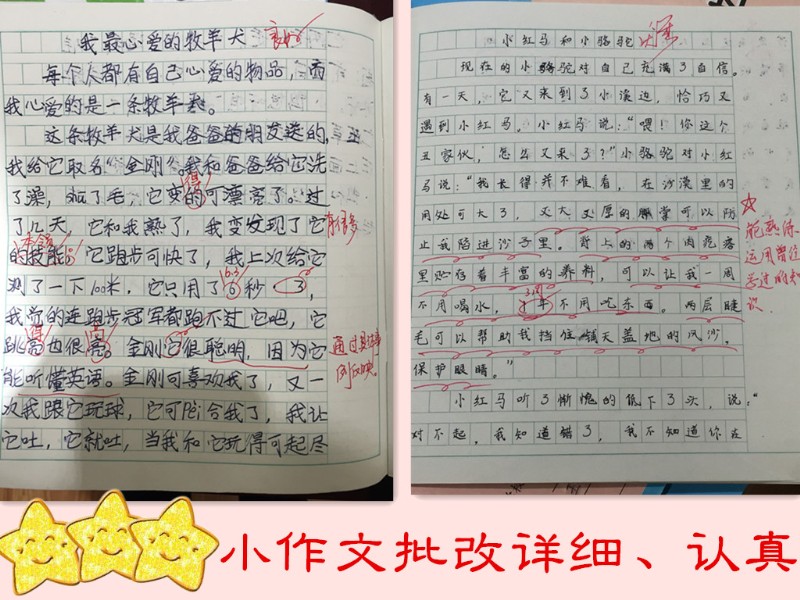 我最心爱的牧羊犬
良好
每个人都有自己心爱的物品，而
我心爱的是一条牧羊犬。
这条牧羊犬是我爸爸的朋友送的，
我给它取名“金刚”。我和爸爸给它洗
了澡，剪了毛，它变的可漂亮了。过
得
了几天，它和我熟了，我变发现了它
有很多
的技能：它跑步可快了，我上次给它
本领
测了一下100米，它只用了6秒
我们的连跑步冠军都跑不过它吧，它
跳也很亮。金刚它很聪明，因为它
得
高
通过具体事
例反映
能听懂英语。金刚可喜欢我了，又一
次我跟它玩球，它可配合我了，我让
它吐，它就吐，当我和它玩得可起尽
小红马和小骆驼
现在的小骆驼对自己充满了自信。
有一天，它又来到了小溪边，恰巧又
遇到小红马，小红马说：“喂！你这个
丑家伙，怎么又来了？”小骆驼对小红
马说：“我长得并不难看，在沙漠里的
用处可大了，又大又厚的脚掌可以防
止我陷进沙子里。背上的两个肉疙瘩
里贮存着丰富的养料，可以让我一周
不用喝水，半年不用吃东西。两层睫
毛可以帮助我挡住铺天盖地的风沙。
保护眼睛。”
能熟练
运用曾经
学过的知
识
小红马听了惭愧的低下了头，说：“
对不起，我知道错了，我不知道你在
小作文批改详细、认真